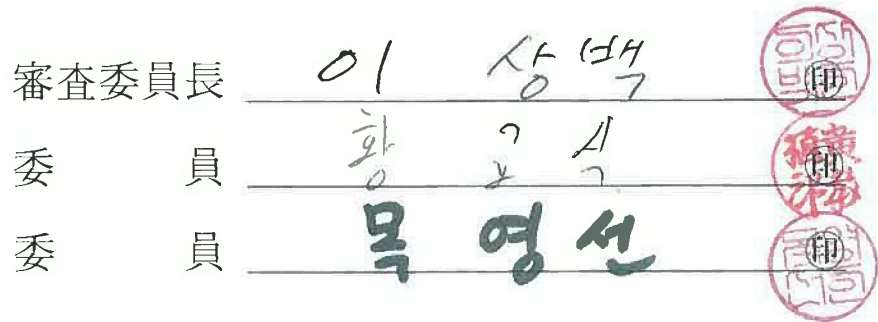 審査委員長 이 상백 印
委員 황 교식 印
委員 목영선 印